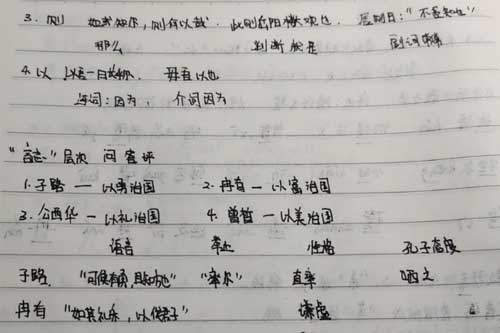 3. 则 如或知尔,则何以哉. 此则岳阳楼大观也. 居则曰:"不吾知也"
那么 判断 就是 副词
4. 以 以吾一日长乎尔. 毋吾以也
连词:因为, 介词因为
"言志"层次 问 答 评
1. 子路 — 以勇治国 2. 冉有 — 以富治国
3. 公西华 — 以礼治国 4. 曾皙 — 以美治国
语言 举止 性格 孔子态度
子路. "可使有勇,且知方也" "率尔" 直率 哂之
冉有 "如其礼乐,以俟君子" 谦虚